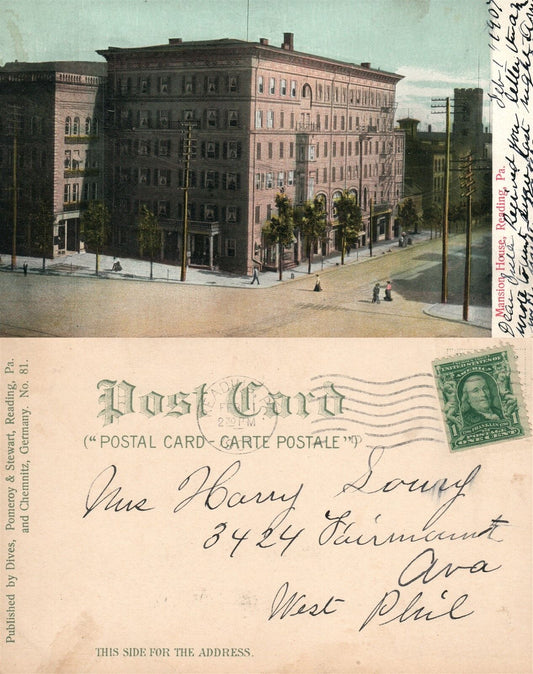 Mansion House, Reading, Pa.
1907
Dear
received your letter
wrote
signed but
Published by Dives, Pomeroy & Stewart, Reading, Pa.
and Chemnitz, Germany. No. 81.
Post Card
("POSTAL CARD-CARTE POSTALE")
2 30 PM
UNITED STATES OF AMERICA
FRANKLIN
POSTAGE
ONE CENT
Mrs Harry Soury
3424 Fairmount
Ava
West Phil
THIS SIDE FOR THE ADDRESS.